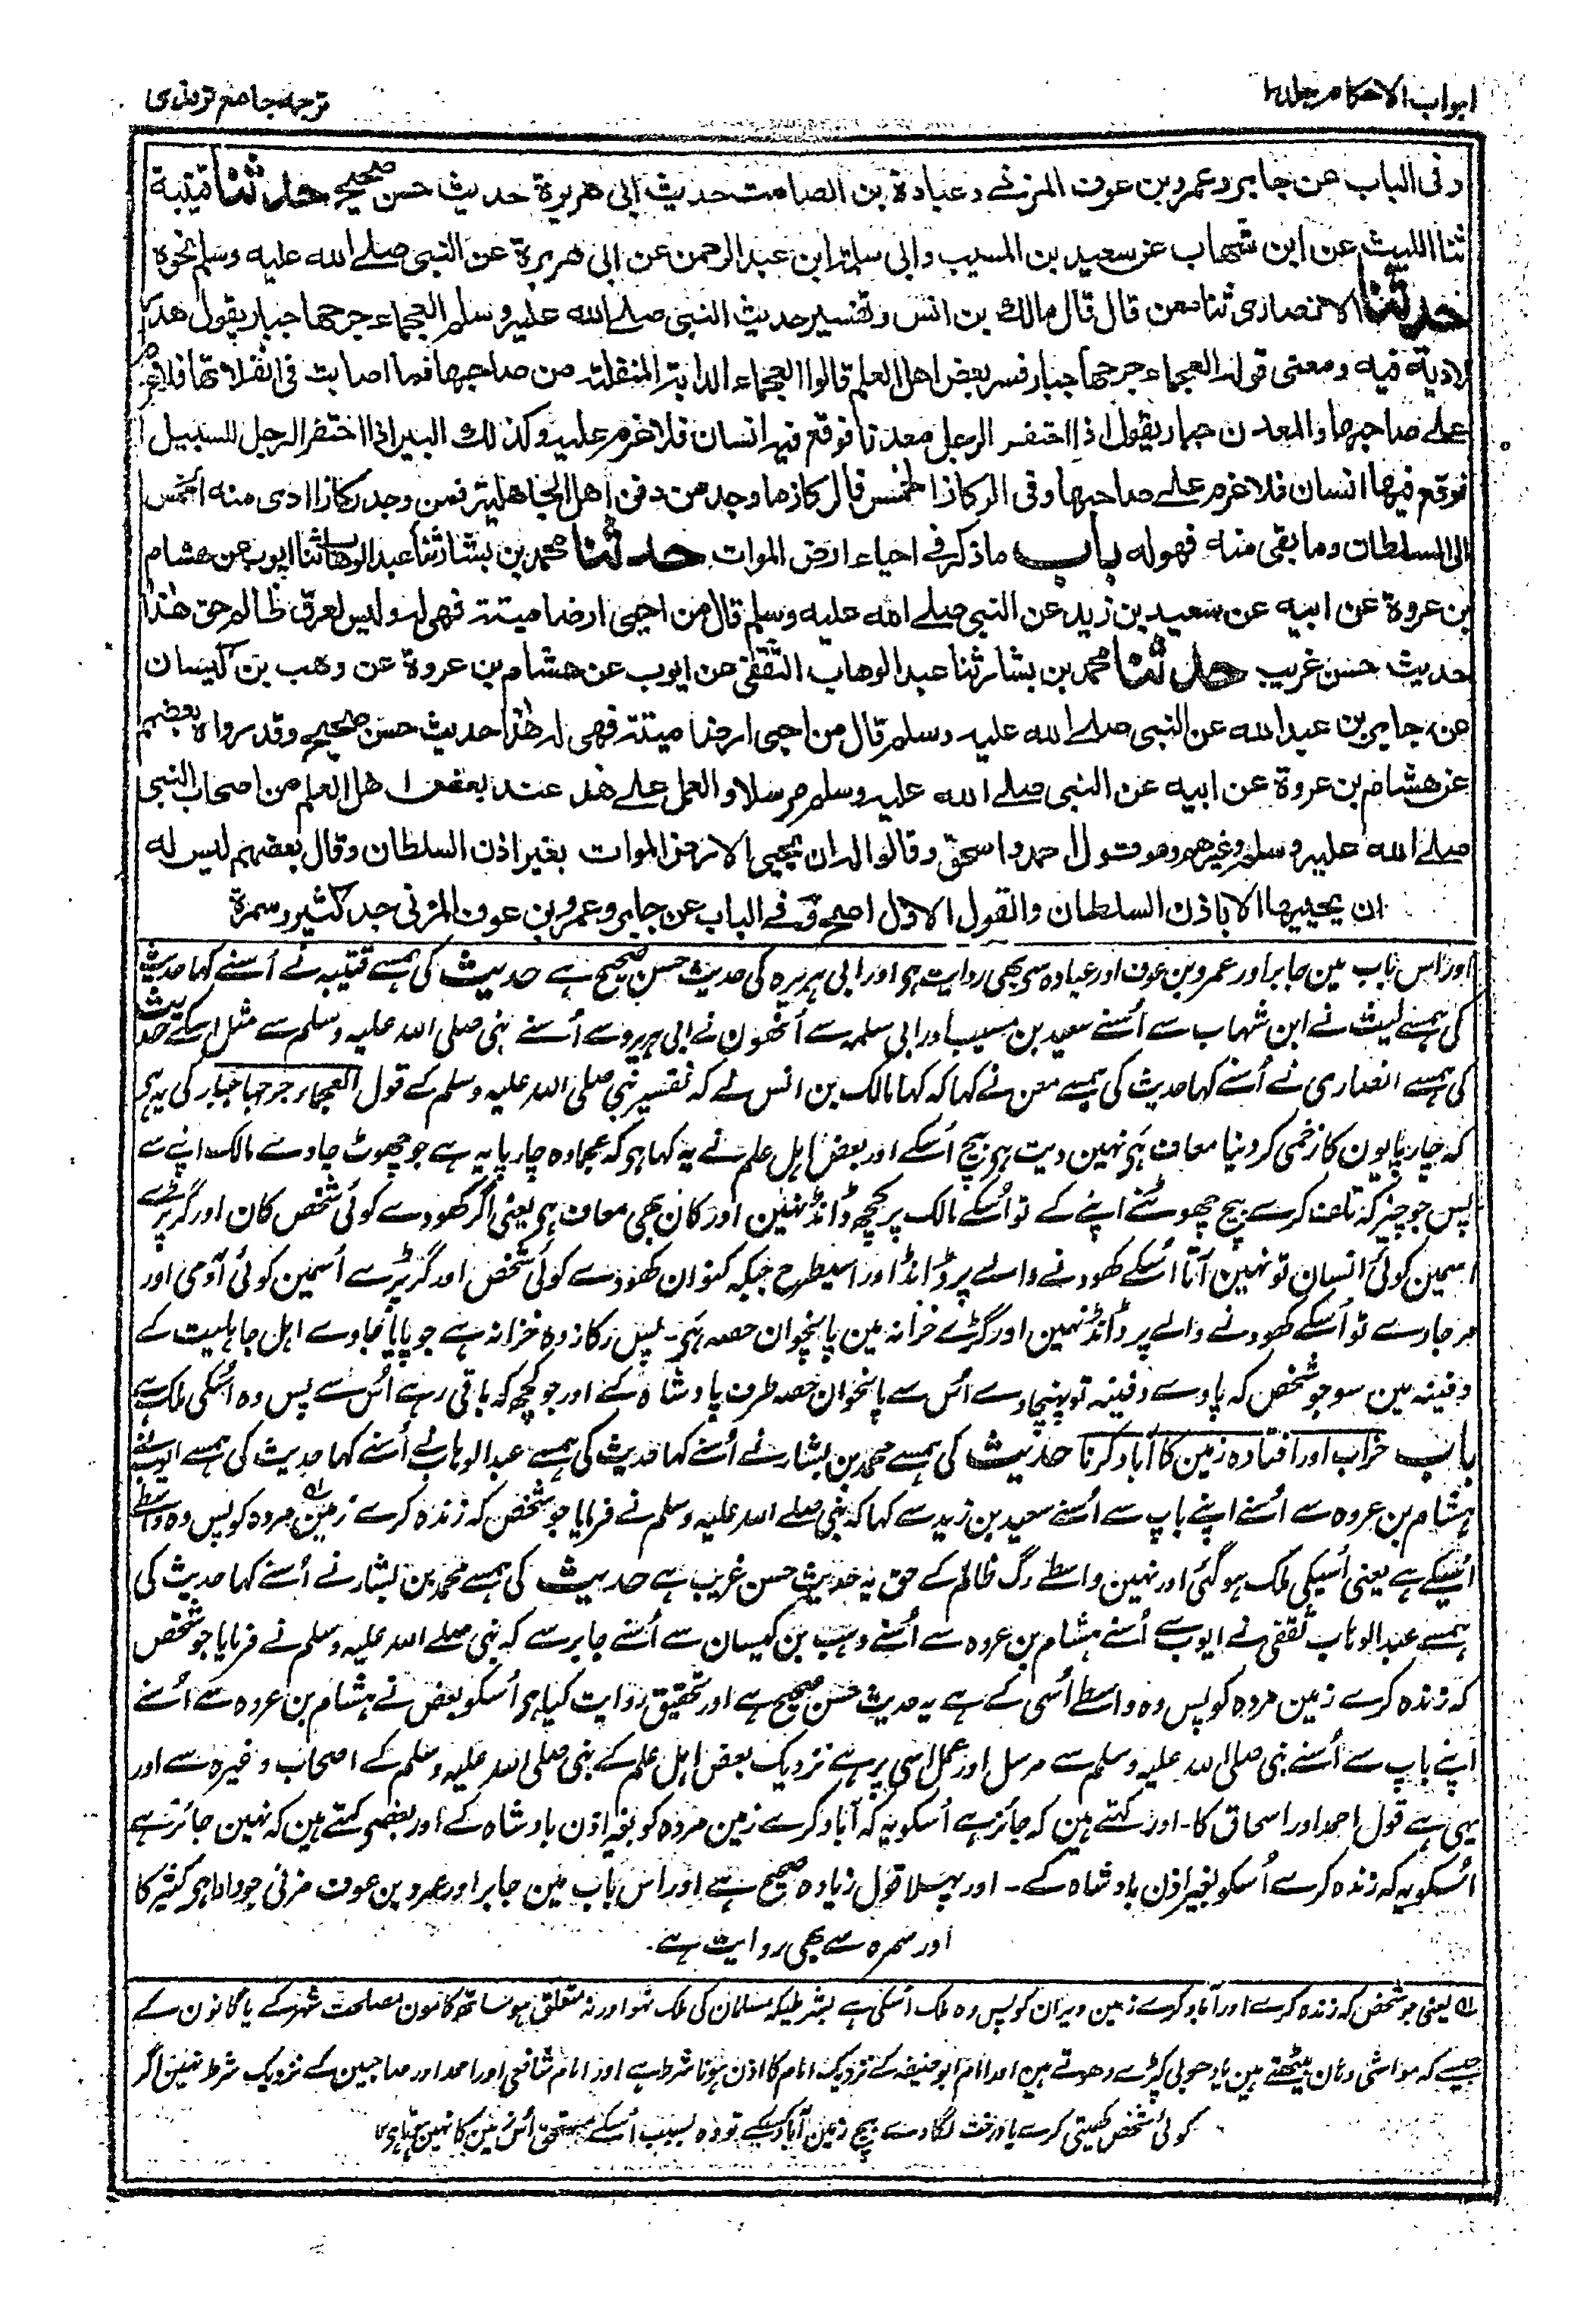 ابواب الاحکام جلد۱
ترجمہ جامع ترمذی
وفی الباب عن جابر وعمرو بن عوف المزنی وعبادة بن الصامت حدیث ابی هریرة حدیث حسن صحیح حدثنا قتیبة
ثنا اللیث عن ابن شهاب عن سعید بن المسیب وابی سلمة ابن عبد الرحمن عن ابی هریرة عن النبی صلے الله علیه وسلم نحوه
حدثنا الانصاری ثنا معن قال قال مالك بن انس وتفسیر حدیث النبی صلے الله علیه وسلم العجماء جرحها جبار یقول هدر
لا دیة فیه ومعنی قوله العجماء جرحها جبار فسر بعض اهل العلم قالوا العجماء الدابة المنفلتة من صاحبها فما اصابت فی انفلاتها فلا غرم
علے صاحبها والمعدن جبار یقول اذا احتفر الرجل معدنا فوقع فیه انسان فلا غرم علیه وکذلك البیر اذا احتفر الرجل للسبیل
فوقع فیها انسان فلا غرم علے صاحبها وفی الرکاز الخمس فالرکاز ما وجد من دفن اهل الجاهلیة فمن وجد رکازا ادی منه الخمس
الی السلطان وما بقی منه فهو له باب ما ذکر فی احیاء ارض الموات حدثنا محمد بن بشار ثنا عبد الوهاب ثنا ایوب عن هشام
بن عروة عن ابیه عن سعید بن زید عن النبی صلے الله علیه وسلم قال من احیی ارضا میتة فهی له ولیس لعرق ظالم حق هٰذا
حدیث حسن غریب حدثنا محمد بن بشار ثنا عبد الوهاب الثقفی عن ایوب عن هشام بن عروة عن وهب بن کیسان
عن جابر بن عبد الله عن النبی صلے الله علیه وسلم قال من احیی ارضا میتة فهی له هٰذا حدیث حسن صحیح وقد رواه بعضهم
عن هشام بن عروة عن ابیه عن النبی صلے الله علیه وسلم مرسلا والعمل علے هذا عند بعض اهل العلم من اصحاب النبی
صلے الله علیه وسلم وغیرهم وهو قول احمد واسحق وقالوا له ان یحیی الارض الموات بغیر اذن السلطان وقال بعضهم لیس له
ان یحییها الا باذن السلطان والقول الاول اصح وفے الباب عن جابر وعمرو بن عوف المزنی جد کثیر وسمرة
اور اس باب مین جابر اور عمرو بن عوف اور عبادہ سی بھی روایت ہی اور ابی ہریرہ کی حدیث حسن صحیح ہے حدیث کی ہمسے قتیبہ نے اُسنے کہا حدیث
کی ہمسے لیث نے ابن شہاب سے اُسنے سعید بن مسیب اور ابی سلمہ سے اُنھون نے ابی ہریرہ سے اُسنے نبی صلی اللہ علیہ وسلم سے مثل اسکے حدیث
کی ہمسے انصاری نے اُسنے کہا حدیث کی ہمسے معن نے کہا کہ کہا مالک بن انس نے کہ تفسیر نبی صلی اللہ علیہ وسلم کے قول العجماء جرحہا جبار کی یہ ہی
کہ چارپایون کا زخمی کر دینا معاف ہی نہین دیت ہی بیچ اُسکے اور بعض اہل علم نے یہ کہا ہی کہ عجما وہ چارپایہ ہے جو چھوٹ جاوے مالک اپنے سے
پس جو چیز کہ تلف کرے بیچ چھوٹنے اپنے کے تو اُسکے مالک پر کچھ ڈانڈ نہین اور کان بھی معاف ہی یعنی اگر کھودے کوئی شخص کان اور گر پڑے
اسمین کوئی انسان تو نہین آتا اُسکے کھودنے والے پر ڈانڈ اور اسیطرح جبکہ کنوان کھودے کوئی شخص اور گر پڑے اُسمین کوئی آدمی اور
مر جاوے تو اُسکے کھودنے والے پر ڈانڈ نہین اور گڑے خزانہ مین پانچوان حصہ ہی۔ پس رکاز وہ خزانہ ہے جو پایا جاوے اہل جاہلیت کے
دفینہ مین سو جو شخص کہ پاوے دفینہ تو پہنچاوے اُس سے پانچوان حصہ طرف پادشاہ کے اور جو کچھ کہ باقی رہے اُس سے پس وہ اُسکی ملک ہے
باب خراب اور افتادہ زمین کا آباد کرنا حدیث کی ہمسے محمد بن بشار نے اُسنے کہا حدیث کی ہمسے عبد الوہاب نے اُسنے کہا حدیث کی ہمسے ایوب نے
ہشام بن عروہ سے اُسنے اپنے باپ سے اُسنے سعید بن زید سے کہا کہ نبی صلے اللہ علیہ وسلم نے فرمایا جو شخص کہ زندہ کرے زمین مردہ کو پس وہ واسطے
اُسیکے ہے یعنی اُسیکی ملک ہوگئی اور نہین واسطے رگ ظالم کے حق یہ حدیث حسن غریب ہے حدیث کی ہمسے محمد بن بشار نے اُسنے کہا حدیث کی
ہمسے عبد الوہاب ثقفی نے ایوب سے اُسنے ہشام بن عروہ سے اُسنے وہب بن کیسان سے اُسنے جابر سے کہ نبی صلے اللہ علیہ وسلم نے فرمایا جو شخص
کہ زندہ کرے زمین مردہ کو پس وہ واسطے اُسی کے ہے یہ حدیث حسن صحیح ہے اور تحقیق روایت کیا ہی اُسکو بعض نے ہشام بن عروہ سے اُسنے
اپنے باپ سے اُسنے نبی صلی اللہ علیہ وسلم سے مرسل اور عمل اسی پر ہے نزدیک بعض اہل علم کے نبی صلی اللہ علیہ وسلم کے اصحاب وغیرہ سے اور
یہی ہے قول احمد اور اسحاق کا۔ اور کہتے ہین کہ جائز ہے اُسکو یہ کہ آباد کرے زمین مردہ کو بغیر اذن بادشاہ کے اور بعضی کہتے ہین کہ نہین جائز ہے
اُسکو یہ کہ زندہ کرے اُسکو بغیر اذن بادشاہ کے۔ اور پہلا قول زیادہ صحیح ہے اور اس باب مین جابر اور عمرو بن عوف مزنی جو دادا ہی کثیر کا
اور سمرہ سے بھی روایت ہے۔
یعنی جو شخص کہ زندہ کرے اور آباد کرے زمین ویران کو پس وہ ملک اُسکی ہے بشرطیکہ مسلمان کی ملک نہو اور نہ متعلق ہو ساتھ کامون مصلحت شہر کے یا گانون کے
جیسے کہ مواشی وہان بیٹھتے ہین یا دھوبی کپڑے دھوتے ہین اور امام ابو حنیفہ کے نزدیک امام کا اذن ہونا شرط ہے اور امام شافعی اور احمد اور صاحبین کے نزدیک شرط نہین اگر
کوئی شخص کھیتی کرے یا درخت لگاوے بیچ زمین آباد کے تو وہ بسبب اُسکے مستحق اُس زمین کا نہین ہوتا ہی